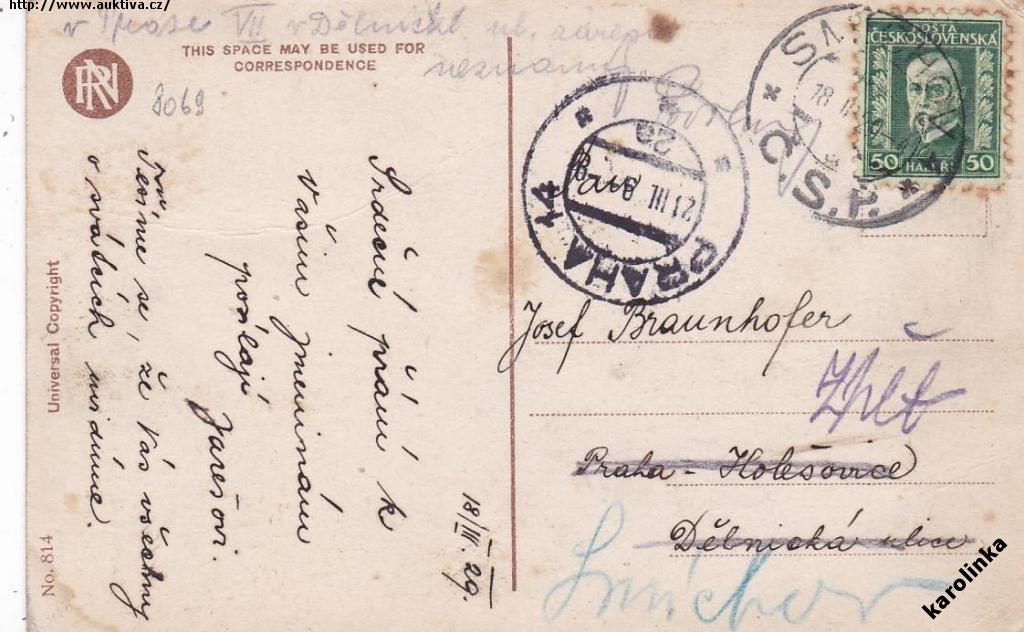 http://www.auktiva.cz/
v Praze VII v Dělnické ul. adresát
neznámý
THIS SPACE MAY BE USED FOR
CORRESPONDENCE
RN
8069
Srdečné přání k
Vašim jmeninám
posílají
Jarešovi.
Těšíme se, že Vás všechny
o svátcích uvidíme.
18/III. 29.
Universal Copyright
No. 814
POŠTA
ČESKOSLOVENSKÁ
50 HALÉŘŮ 50
Č.S.P.
PRAHA 14
21.III.
2a
Josef Braunhofer
Zpět
Praha - Holešovice
Dělnická ulice
Smíchov
karolinka